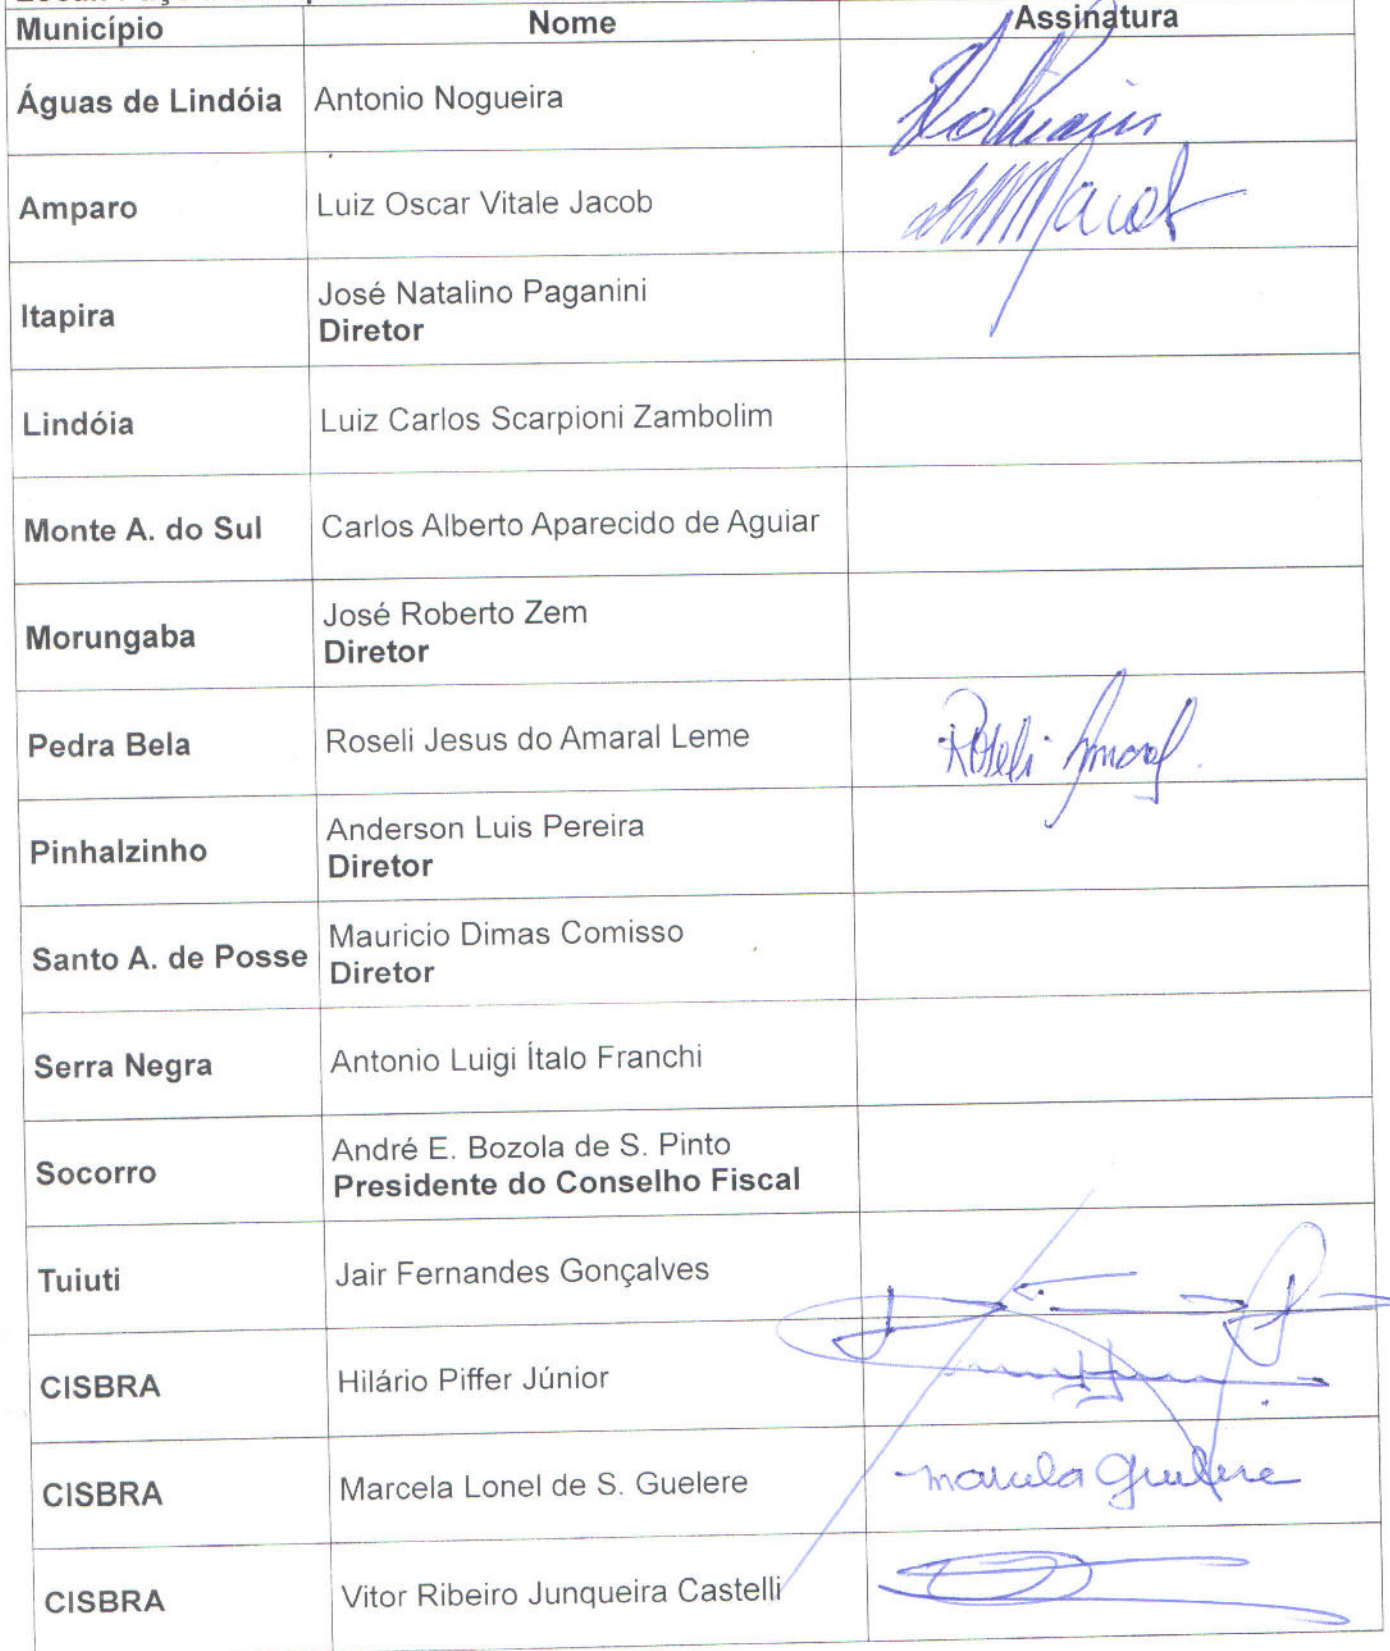 Município Nome Assinatura
Águas de Lindóia Antonio Nogueira
Amparo Luiz Oscar Vitale Jacob
Itapira José Natalino Paganini
Diretor
Lindóia Luiz Carlos Scarpioni Zambolim
Monte A. do Sul Carlos Alberto Aparecido de Aguiar
Morungaba José Roberto Zem
Diretor
Pedra Bela Roseli Jesus do Amaral Leme Roseli Amaral
Pinhalzinho Anderson Luis Pereira
Diretor
Santo A. de Posse Mauricio Dimas Comisso
Diretor
Serra Negra Antonio Luigi Ítalo Franchi
Socorro André E. Bozola de S. Pinto
Presidente do Conselho Fiscal
Tuiuti Jair Fernandes Gonçalves
CISBRA Hilário Piffer Júnior
CISBRA Marcela Lonel de S. Guelere Marcela Guelere
CISBRA Vitor Ribeiro Junqueira Castelli